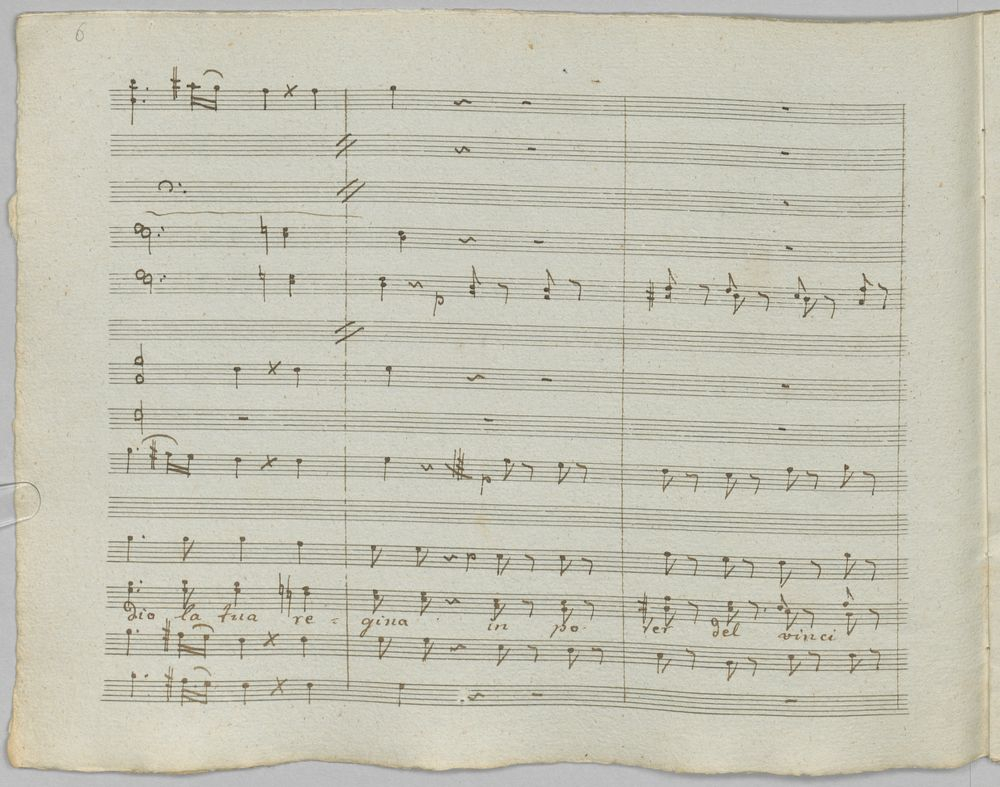 6
p
p
p
dio la tua re = gina in po ter del vinci